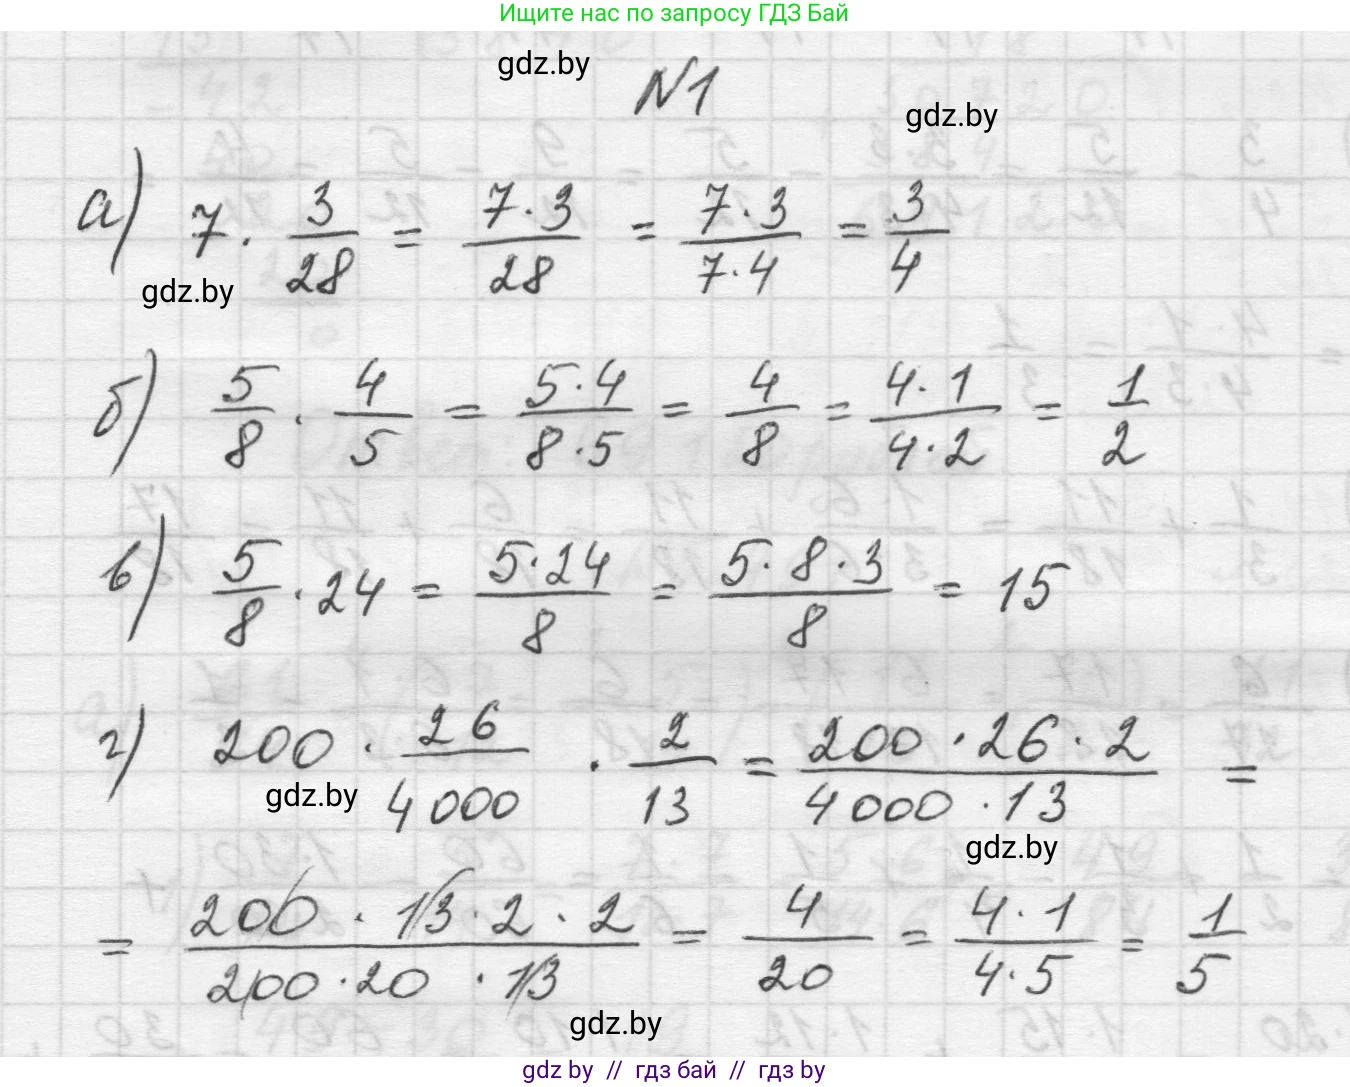 Ищите нас по запросу ГДЗ Бай
gdz.by
№1
gdz.by
а) 7 · 3/28 = 7·3/28 = 7·3/7·4 = 3/4
gdz.by
б) 5/8 · 4/5 = 5·4/8·5 = 4/8 = 4·1/4·2 = 1/2
в) 5/8 · 24 = 5·24/8 = 5·8·3/8 = 15
г) 200 · 26/4000 · 2/13 = 200·26·2/4000·13 =
gdz.by
gdz.by
= 200·13·2·2/200·20·13 = 4/20 = 4·1/4·5 = 1/5
gdz.by
gdz by // гдз бай // gdz by